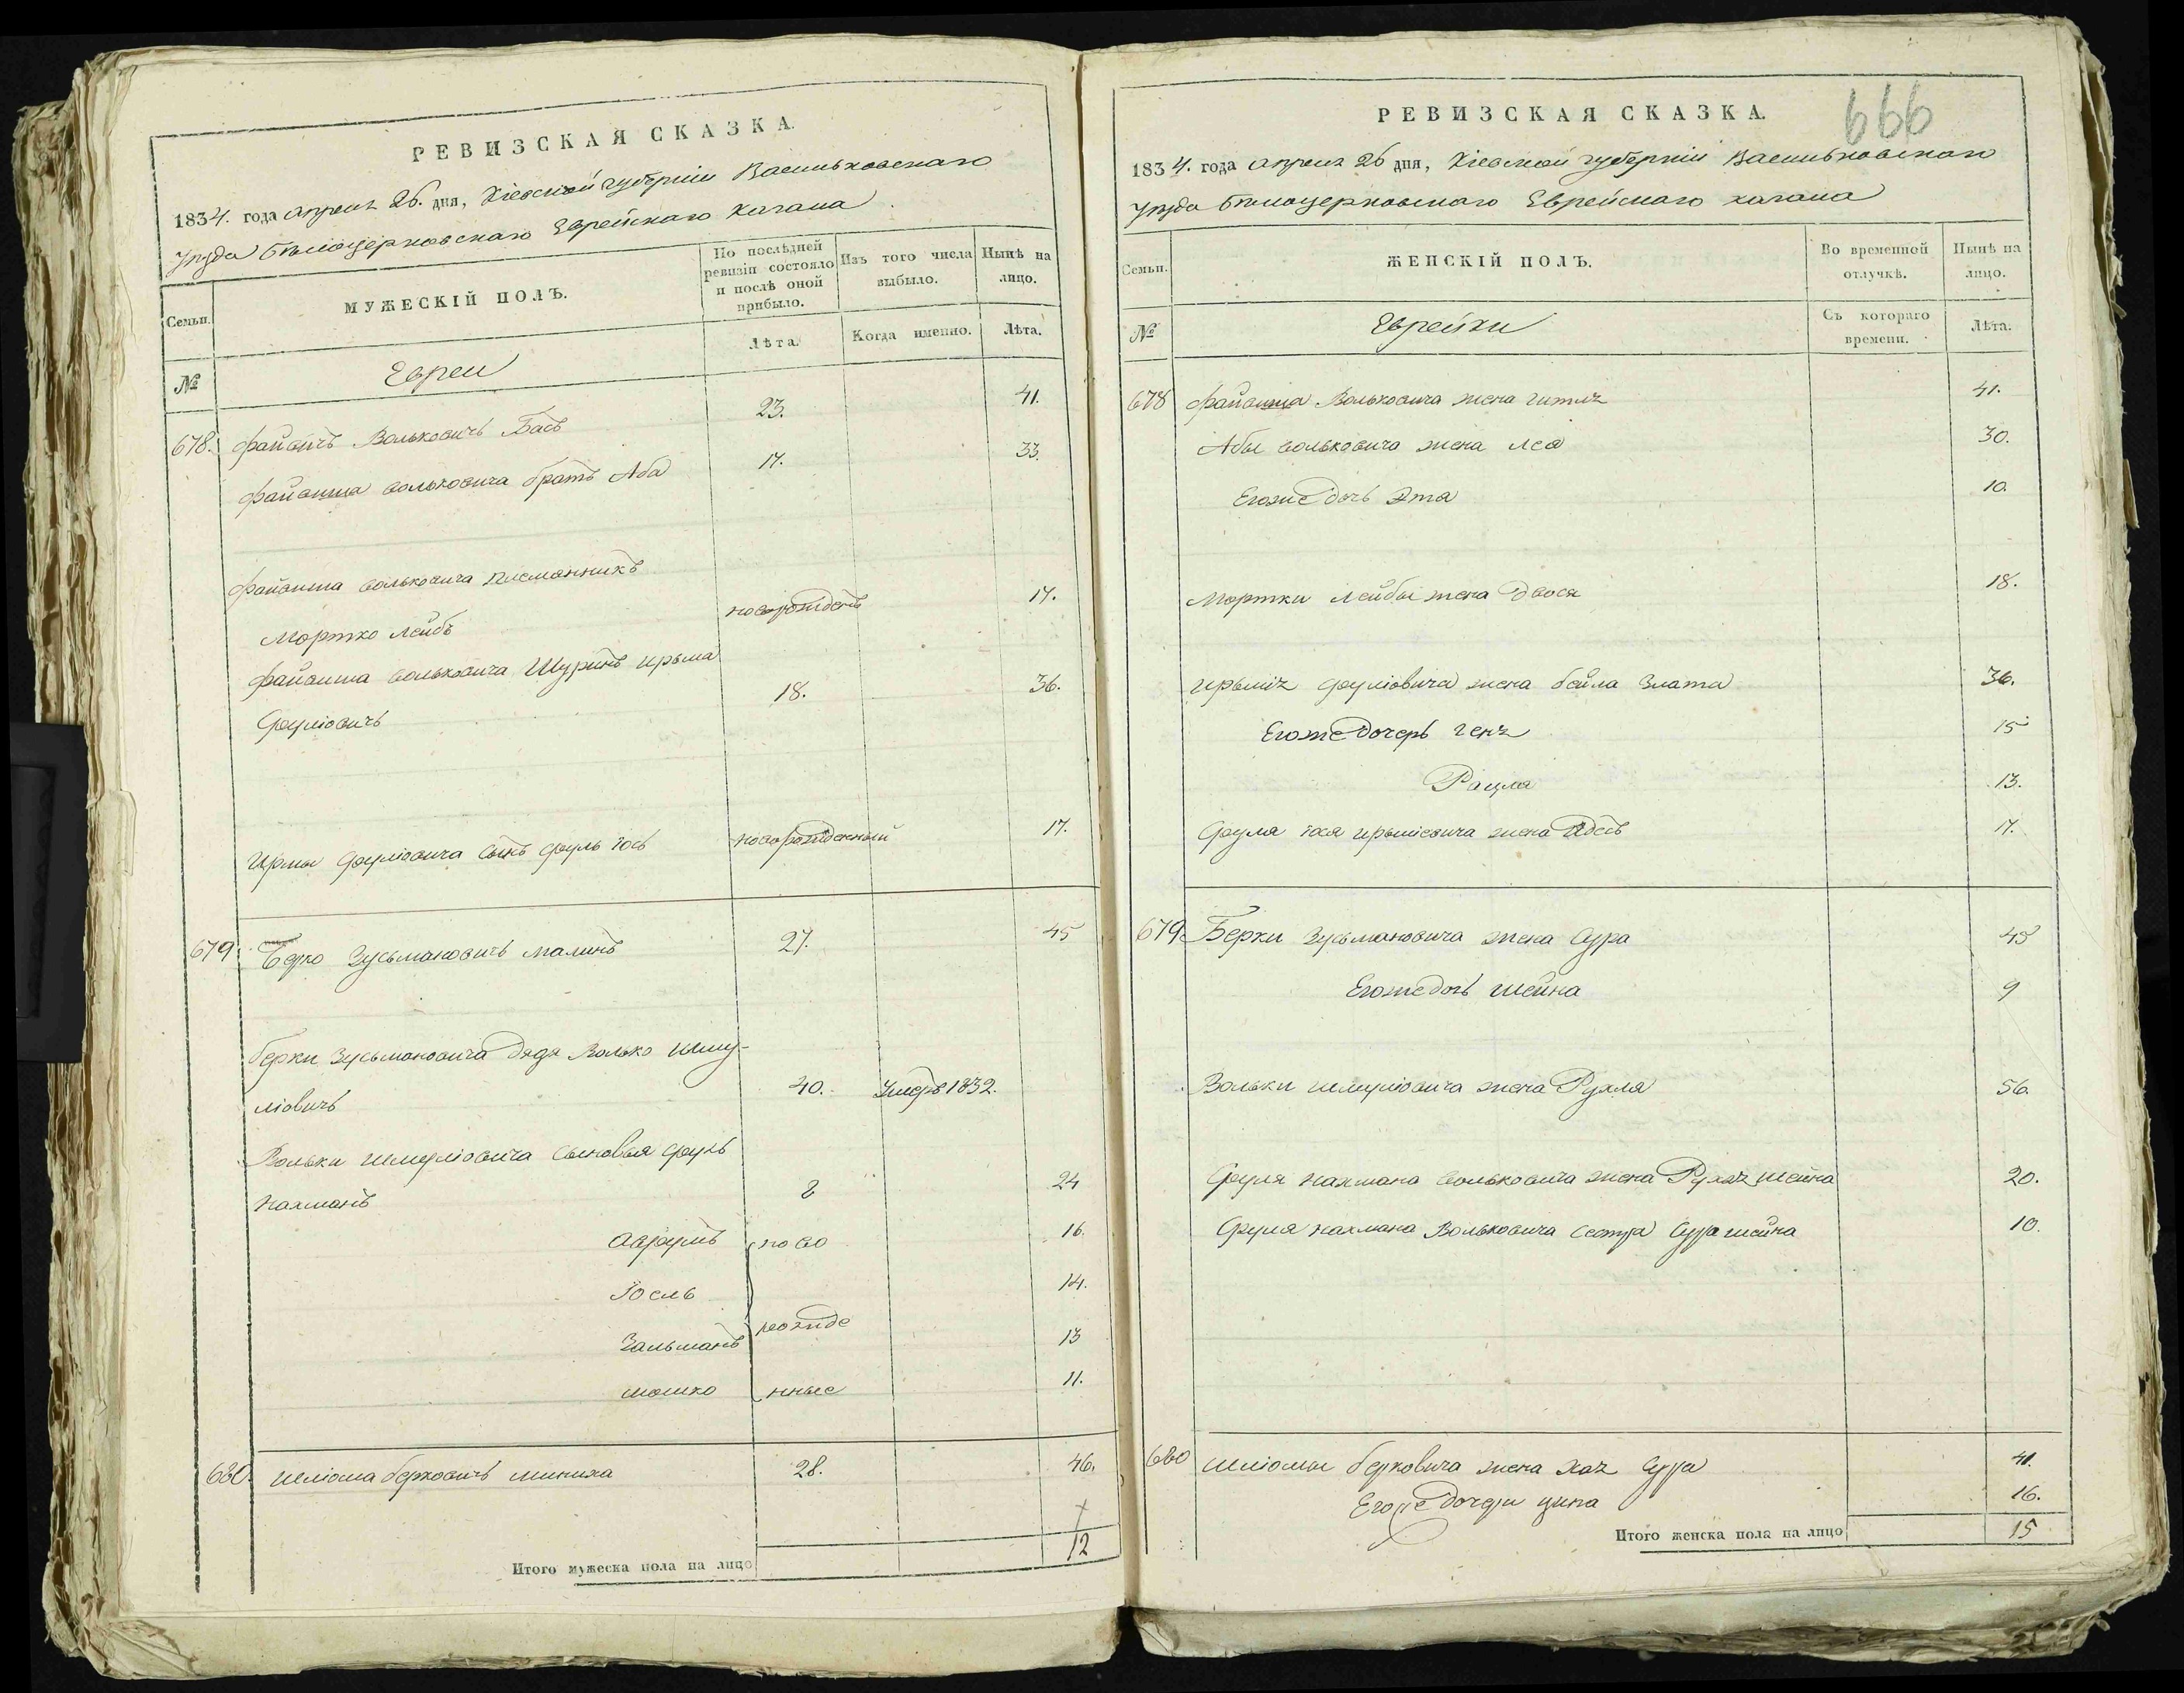 РЕВИЗСКАЯ СКАЗКА.
1834. года апреля 26. дня, Кіевской губерніи Васильковскаго
уезда Белоцерковскаго Еврейскаго кагала
Семьи.
МУЖЕСКІЙ ПОЛЪ.
По послѣдней ревизіи состояло и послѣ оной прибыло.
Изъ того числа выбыло.
Нынѣ на лицо.
№
Евреи
Лѣта.
Когда именно.
Лѣта.
678. Файвишъ Вольковичъ Басъ 23. 41.
Файвиша Вольковича братъ Аба 17. 33.
Файвиша Вольковича
Мортко Лейбъ новорожденъ 17.
Файвиша Вольковича Шуринъ Ирьма
Сруліовичъ 18. 36.
Ирмы Сруліовича сынъ Сруль Іось новорожденный 17.
679. Берко Зусьмановичъ Малинъ 27. 45
Берки Зусьмановича дядя Волько Шму-
ліовичъ 40. Умеръ 1832.
Вольки Шмуліовича сыновья Сруль
Нахманъ 8 24
Аврумъ ново 16.
Іосль 14.
Зальманъ рожде 13
Мошко нные 11.
680. Шліома Берковичъ 28. 46.
12
Итого мужеска пола на лицо
РЕВИЗСКАЯ СКАЗКА.
666
1834. года апреля 26 дня, Кіевской губерніи Васильковскаго
уезда Белоцерковскаго Еврейскаго кагала
Семьи.
ЖЕНСКІЙ ПОЛЪ.
Во временной отлучкѣ.
Нынѣ на лицо.
№
Еврейки
Съ котораго времени.
Лѣта.
678 Файвиша Вольковича жена Гитля 41.
Абы Вольковича жена Лея 30.
Егоже дочь Эта 10.
Мортки Лейбы жена Двося 18.
Сруліовича жена Бейла Злата 36.
Егоже дочерь Геня 15
Рацля 13.
Сруля Іося жена 17.
679. Берки Зусьмановича жена Сура 45
Егоже дочь Шейна 9
Вольки Шмуліовича жена Рухля 56.
Сруля Нахмана Вольковича жена Шейна 20.
Сруля Нахмана Вольковича сестра Сура Шейна 10.
680 Шліомы Берковича жена Хая Сура 41.
Егоже дочери 16.
Итого женска пола на лицо 15